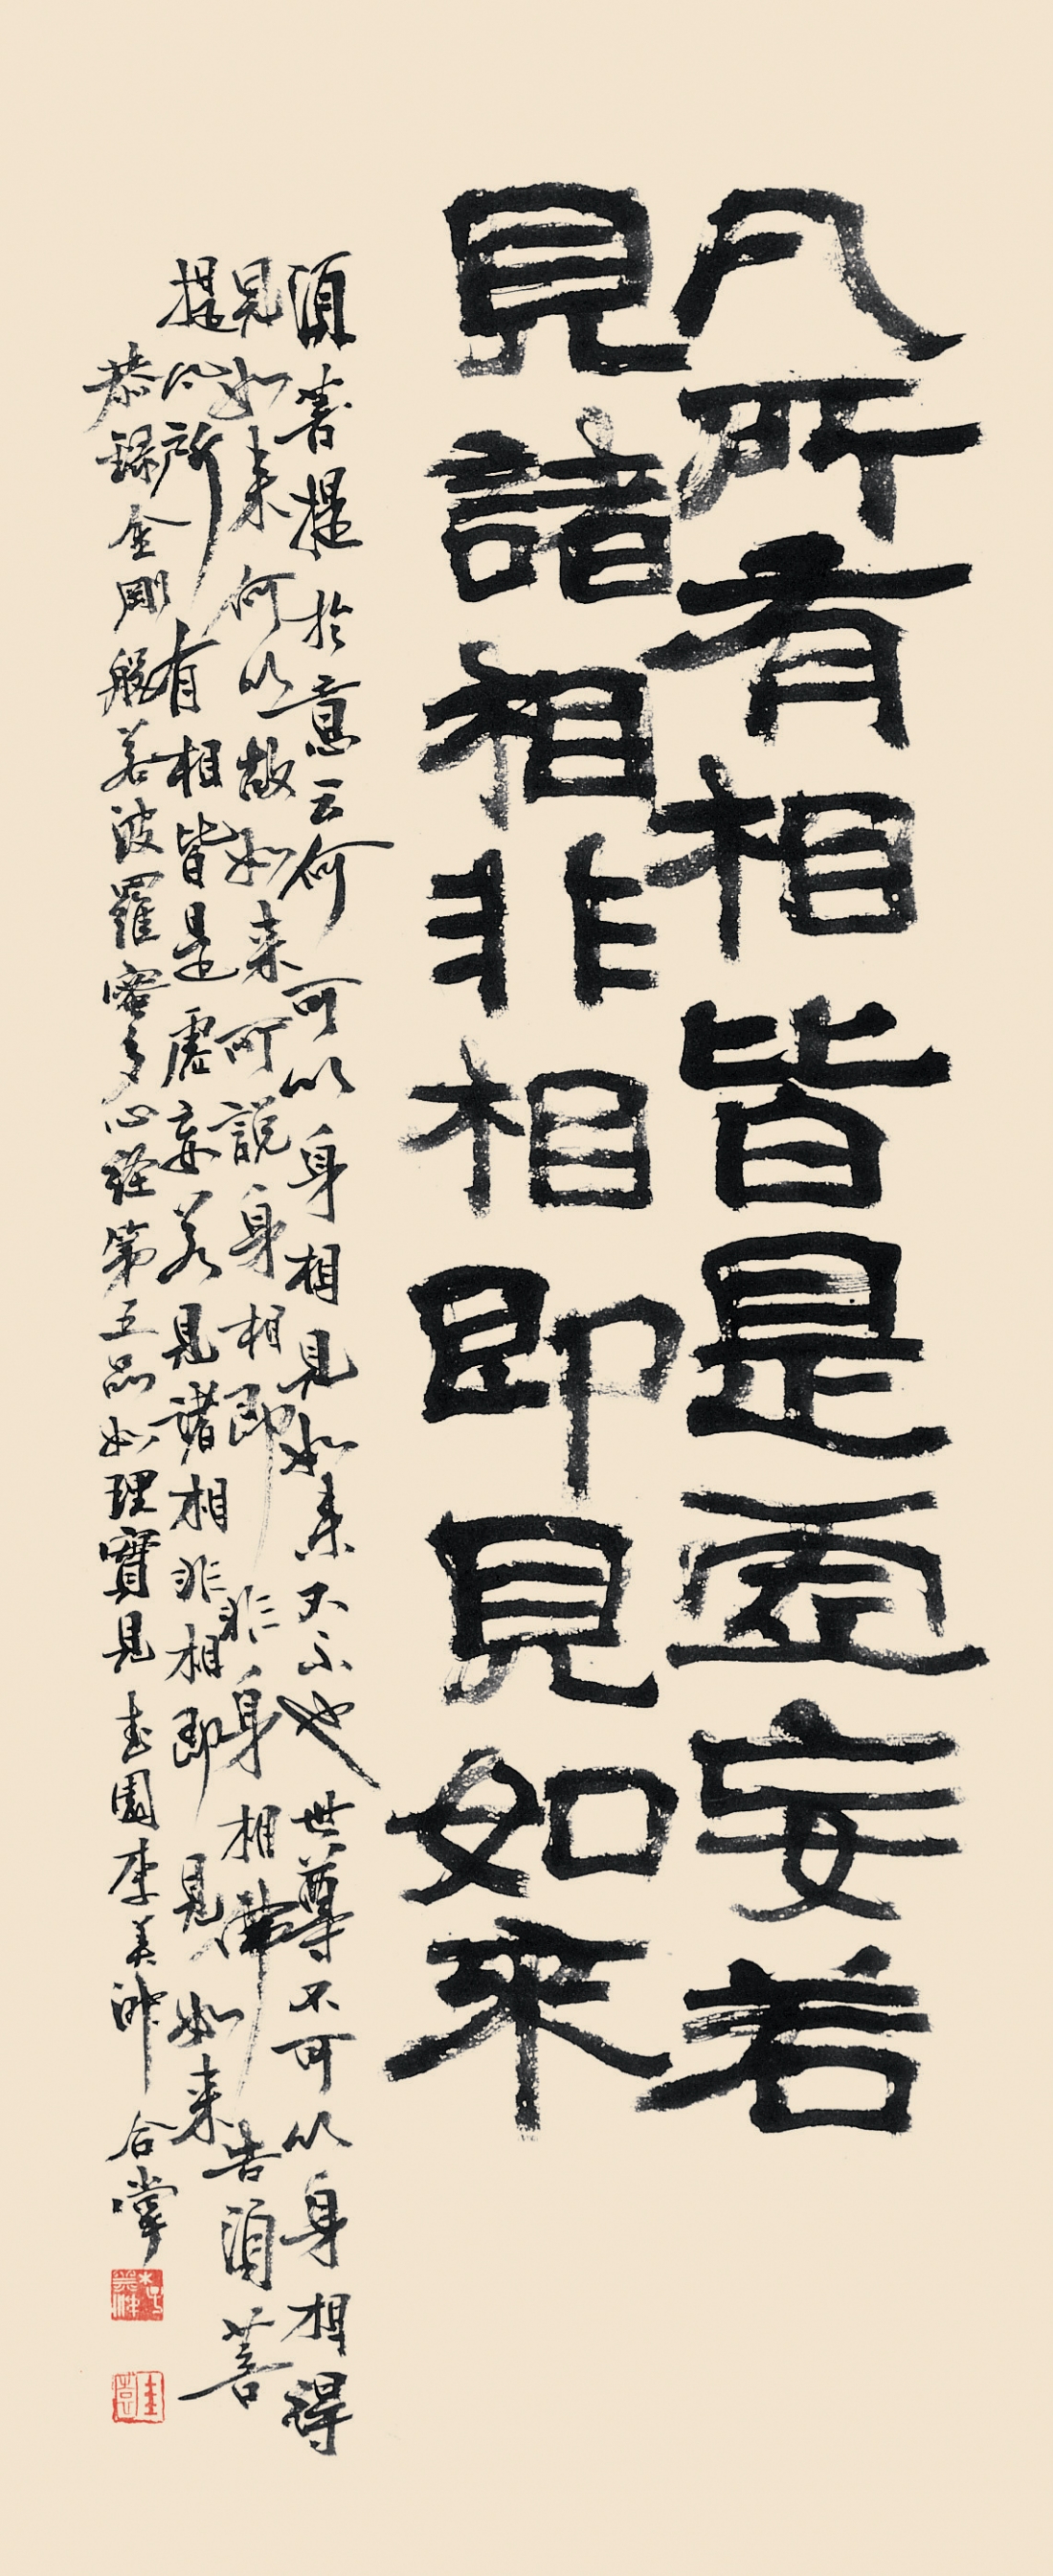 凡所有相皆是虛妄若
見諸相非相即見如來
須菩提於意云何可以身相見如来不不也世尊不可以身相得
見如来何以故如来所說身相即非身相佛告須菩
提凡所有相皆是虛妄若見諸相非相即見如来
恭録金剛般若波羅密多心經第五品如理實見 圭園李美沖合掌